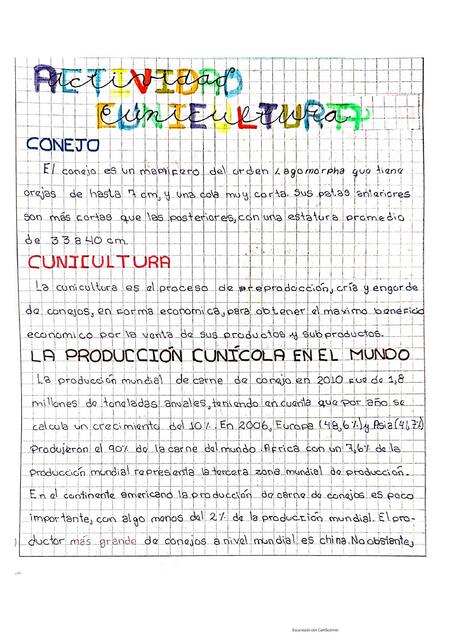 ACTIVIDAD
actividad
CUNICULTURA
cunicultura
CONEJO
El conejo es un mamifero del orden Lagomorpha que tiene
orejas de hasta 7 cm, y una cola muy corta. Sus patas anteriores
son más cortas que las posteriores, con una estatura promedio
de 33 a 40 cm.
CUNICULTURA
La cunicultura es el proceso de preproducción, cría y engorde
de conejos, en forma economica, para obtener el maximo beneficio
economico por la venta de sus productos y subproductos.
LA PRODUCCIÓN CUNÍCOLA EN EL MUNDO
La producción mundial de carne de conejo en 2010 fue de 1,8
millones de toneladas anuales, teniendo en cuenta que por año se
calcula un crecimiento del 10%. En 2006, Europa (48,6%) y Asia (41,7%)
Produjeron el 90% de la carne del mundo. Africa con un 7,6% de la
Producción mundial representa la tercera zona mundial de producción.
En el continente americano la producción de carne de conejos es poco
importante, con algo menos del 2% de la producción mundial. El pro-
ductor más grande de conejos a nivel mundial es china. No obstante,
Escaneado con CamScanner